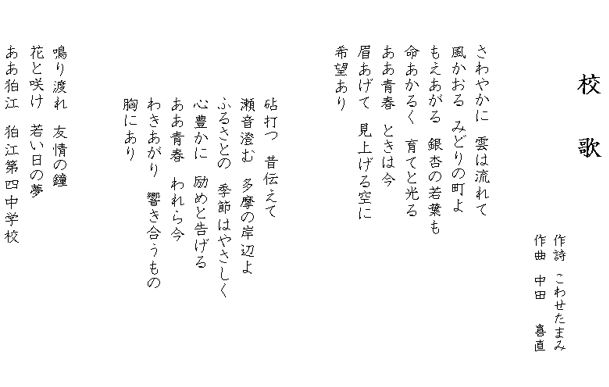 校歌
作詩 こわせたまみ
作曲 中田 喜直
さわやかに 雲は流れて
風かおる みどりの町よ
もえあがる 銀杏の若葉も
命あかるく 育てと光る
ああ青春 ときは今
眉あげて 見上げる空に
希望あり
砧打つ 昔伝えて
瀬音澄む 多摩の岸辺よ
ふるさとの 季節はやさしく
心豊かに 励めと告げる
ああ青春 われら今
わきあがり 響き合うもの
胸にあり
鳴り渡れ 友情の鐘
花と咲け 若い日の夢
ああ狛江 狛江第四中学校